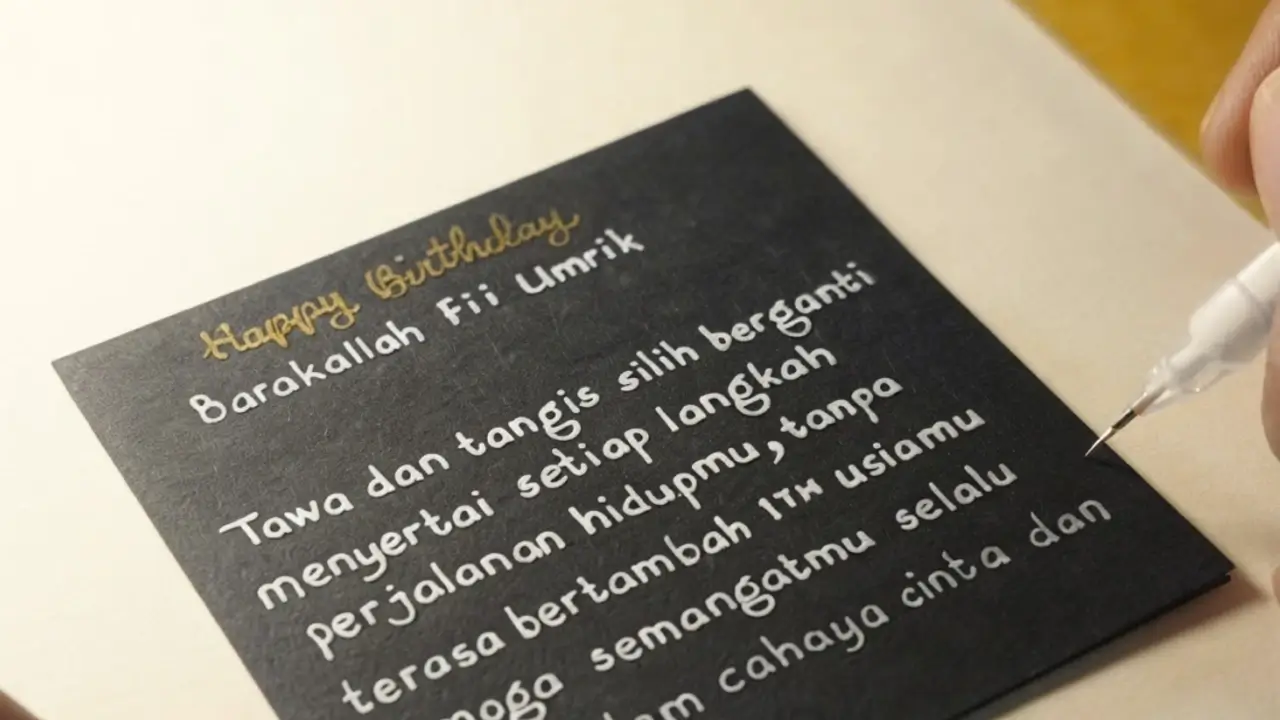 Happy Birthday
Barakallah Fii Umrik
Tawa dan tangis silih berganti
menyertai setiap langkah
perjalanan hidupmu, tanpa
terasa bertambah 1TH usiamu
semangatmu selalu
cahaya cinta dan